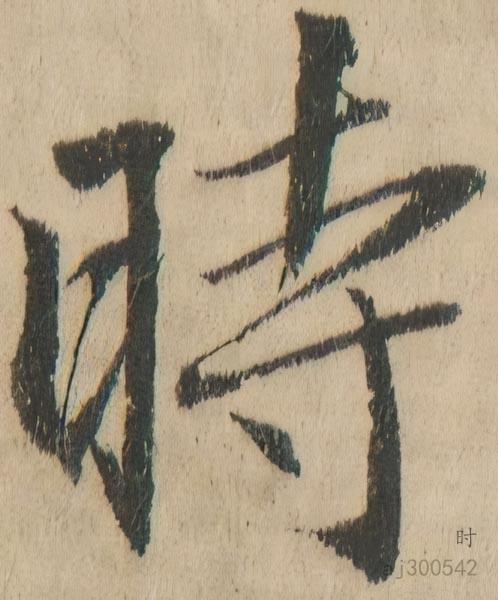 時
时
aj300542